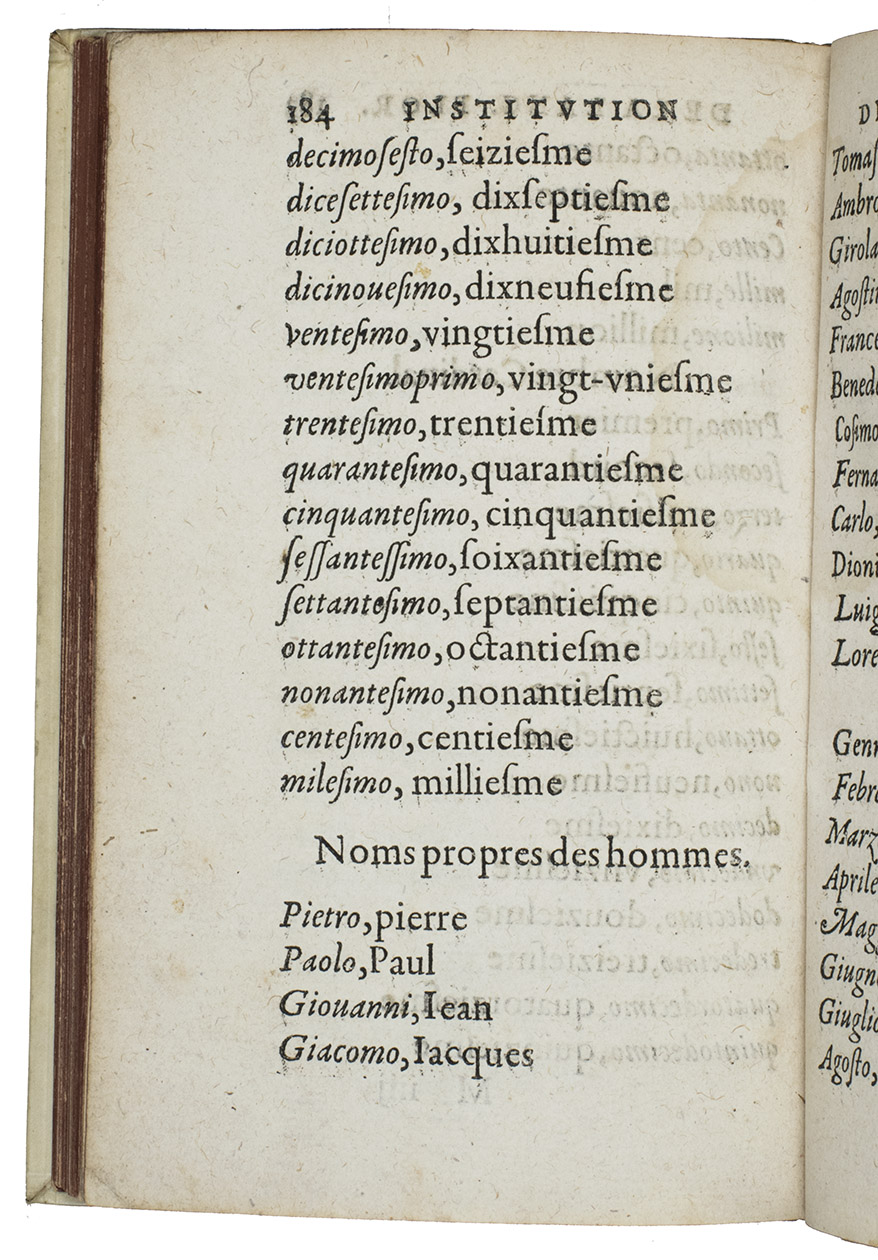 184 INSTITVTION
decimoſeſto, ſeizieſme
diceſetteſimo, dixſeptieſme
diciotteſimo, dixhuitieſme
dicinoueſimo, dixneufieſme
Venteſimo, vingtieſme
venteſimoprimo, vingt-vnieſme
trenteſimo, trentieſme
quaranteſimo, quarantieſme
cinquanteſimo, cinquantieſme
ſeſſanteſſimo, ſoixantieſme
ſettanteſimo, ſeptantieſme
ottanteſimo, octantieſme
nonanteſimo, nonantieſme
centeſimo, centieſme
mileſimo, millieſme
Noms propres des hommes.
Pietro, pierre
Paolo, Paul
Giouanni, Iean
Giacomo, Iacques
D
Tomaſ
Ambro
Girola
Agoſti
France
Bened
Coſimo
Ferna
Carlo,
Dioni
Luig
Lore
Genn
Febr
Marz
Aprile
Mag
Giugn
Giuglio
Agoſto,